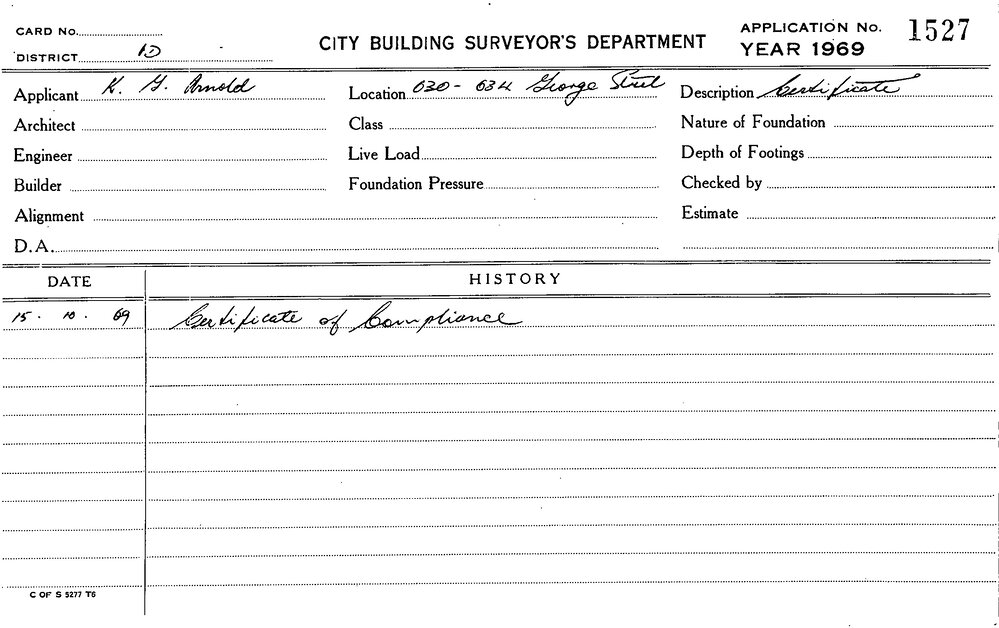 CARD No.
DISTRICT 1D
CITY BUILDING SURVEYOR'S DEPARTMENT
APPLICATION No. 1527
YEAR 1969
Applicant K. G. Arnold
Location 630 - 634 George Street
Description Certificate
Architect
Class
Nature of Foundation
Engineer
Live Load
Depth of Footings
Builder
Foundation Pressure
Checked by
Alignment
Estimate
D.A.
DATE
HISTORY
15 . 10 . 69 Certificate of Compliance
C OF S 5277 T6